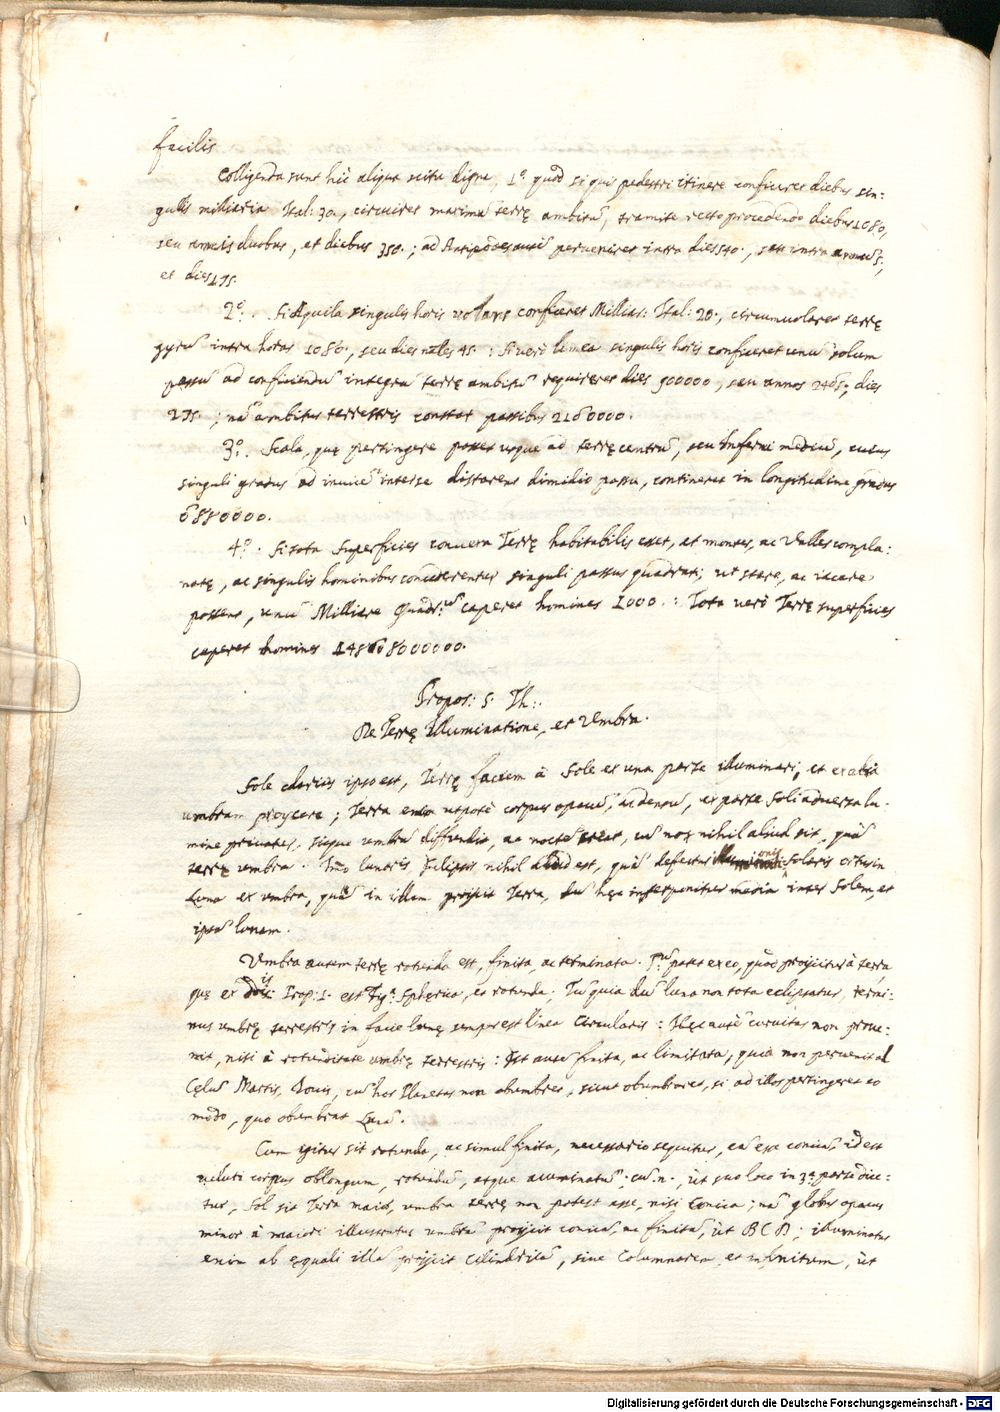 facilis
Colligenda sunt hic aliqua scitu digna, 1.° quod si quis pedestri itinere conficeret diebus sin:
gulis milliaria Ital: 20., circuiret maximũ terrę ambitũ, tramite recto procedendo diebus 1080,
seu annis duobus, et diebus 350.; ad Antipodes autẽ perveniret intra dies 540., seu intra annũ 1.,
et dies 175.
2.°. Si Aquila singulis horis volans conficeret Milliar: Ital: 20., circumvolaret terrę
gyrũ intra horas 1080., seu dies nãles 45.: si verò limea singulis horis conficeret unũ solum
passũ ad conficiendũ integrũ terrę ambitũ requireret dies 900000, seu annos 2465., dies
275.; nã ambitus terrestris constat passibus 21600000.
3.°. Scala, quę pertingere posset usque ad terrę centrũ, seu Inferni mediũ, cuius
singuli gradus ad invicẽ inter se distarent dimidio passu, contineret in longitudine gradus
6880000.
4.°. Si tota superficies convexa Terrę habitabilis esset, et montes, ac Valles compla:
natę, ac singulis hominibus concederentur singuli passus quadrati, ut stare, ac iacere
possent, unũ Milliare Quadr:ũ caperet homines 1000.: Tota verò Terrę superficies
caperet homines 148608000000.
Propos: 5. Th:.
De Terrę Illuminatione, et Umbra.
Sole clarius ipso est, Terrę faciem à Sole ex una parte illuminari, et ex alia
umbram proijcere; Terra enim utpotè corpus opacũ, ac densũ, ex parte Soli adversa lu-
mine privatur, sicque umbrã diffundit, ac noctẽ creat, cũ nox nihil aliud sit, quã
terrę umbra. Imò lunaris Eclipsis nihil aliud est, quã defectus illuminationis Solaris ortus in
Luna ex umbra, quã in illam proijcit Terra, dũ hęc interponitur media inter Solem, et
ipsã lunam.
Umbra autem terrę rotunda est, finita, ac terminata. P.ũ patet ex eo, quòd proijcitur à terra
quę ex dictis Prop: 1. est Fig.ę Sphęrica, et rotunda; Tũ quia dũ luna non tota eclipsatur, termi:
nus umbrę terrestris in facie lunę semper est linea Circularis: Hęc autẽ curvitas non prove:
nit, nisi à rotunditate umbrę terrestris: Est autẽ finita, ac limitata, quia non pervenit ad
Cęlũ Martis, Iovis, cũ hos Planetas non obumbret, sicut obumbraret, si ad illos pertingeret eo
modo, quo obumbrat Lunã.
Cum igitur sit rotunda, ac simul finita, necessario sequitur, eã esse conicã, idest
veluti corpus oblongum, rotundũ, atque acuminatũ; cũ .n., ut suo loco in 3.ª parte dice-
tur, Sol sit Terra maior, umbra terrę non potest esse, nisi Conica; nã globus opacus
minor à maiori illustratus umbrã proijcit conicã, ac finitã, ùt BCD; illuminatus
enim ab ęquali illã proijcit Cilindricã, sive Columnarem, et infinitam, ùt
Digitalisierung gefördert durch die Deutsche Forschungsgemeinschaft - DFG